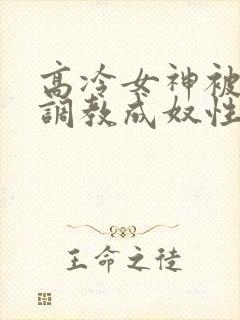 高冷女神被
調教成奴性
王命之徒